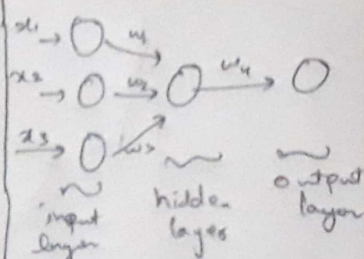 x1
w1
x2
w2
w4
x3
w3
input
layer
hidden
layer
output
layer